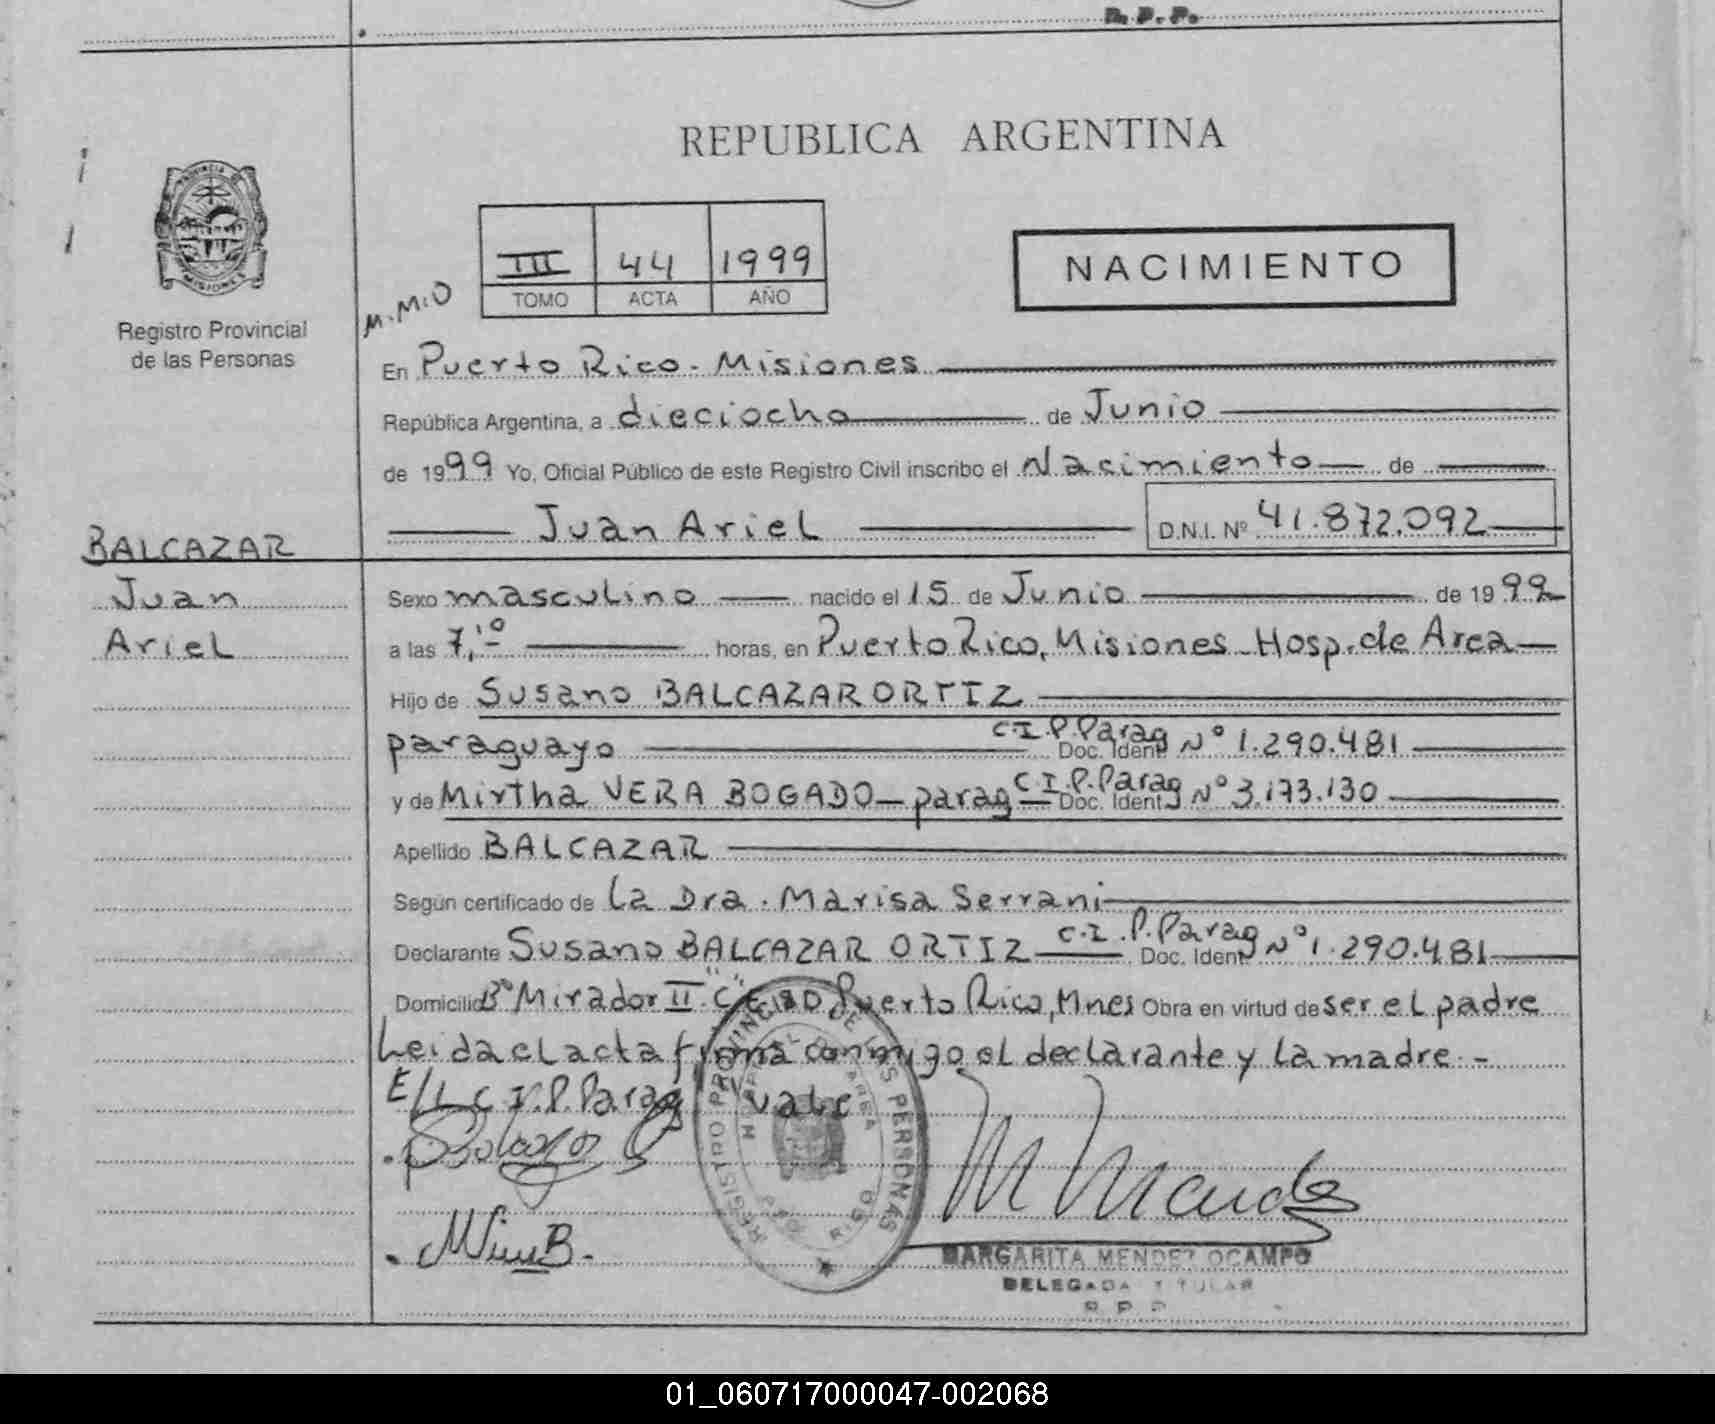 R.P.P.
REPUBLICA ARGENTINA
PROVINCIA DE MISIONES
Registro Provincial
de las Personas
III 44 1999
TOMO ACTA AÑO
NACIMIENTO
M.M.O
En Puerto Rico - Misiones
República Argentina, a dieciocho de Junio
de 1999 Yo, Oficial Público de este Registro Civil inscribo el Nacimiento de
Juan Ariel D.N.I. Nº 41.872.092
BALCAZAR
Juan
Ariel
Sexo masculino nacido el 15 de Junio de 1999
a las 7,10 horas, en Puerto Rico, Misiones - Hosp. de Area
Hijo de Susano BALCAZAR ORTIZ
paraguayo C.I.P. Parag Doc. Ident Nº 1.290.481
y de Mirtha VERA BOGADO - parag C.I.P. Parag Doc. Ident. Nº 3.173.130
Apellido BALCAZAR
Según certificado de La Dra. Marisa Serrani
Declarante Susano BALCAZAR ORTIZ C.I.P. Parag Doc. Ident Nº 1.290.481
Domicilio Bº Mirador II "C" Puerto Rico, Mnes Obra en virtud de ser el padre
Leida el acta firma conmigo el declarante y la madre.-
E/L C.I.P. Parag Vale
REGISTRO PROVINCIAL DE LAS PERSONAS
MARGARITA MENDEZ OCAMPO
DELEGADA TITULAR
R.P.P.
01_060717000047-002068